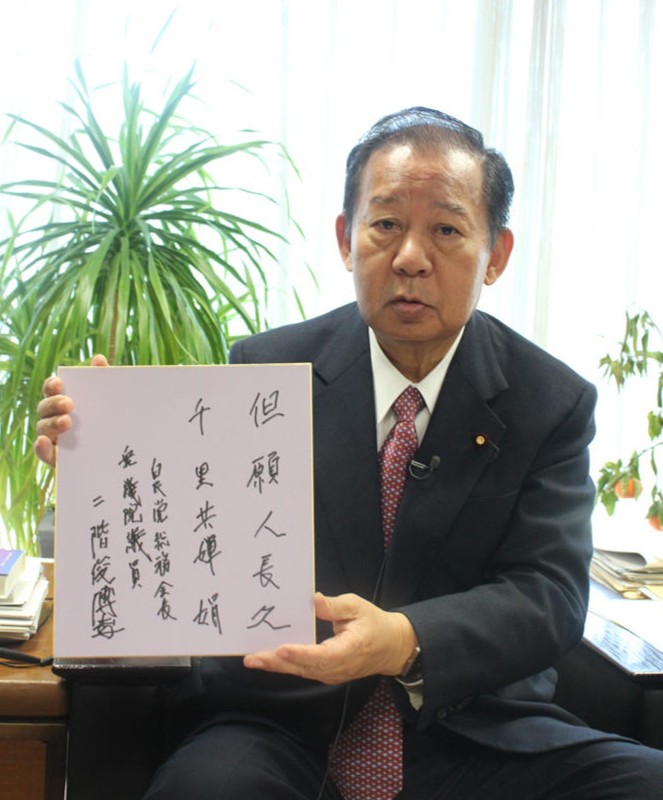 但願人長久
千里共嬋娟
自民党総務会長
衆議院議員
二階俊博書